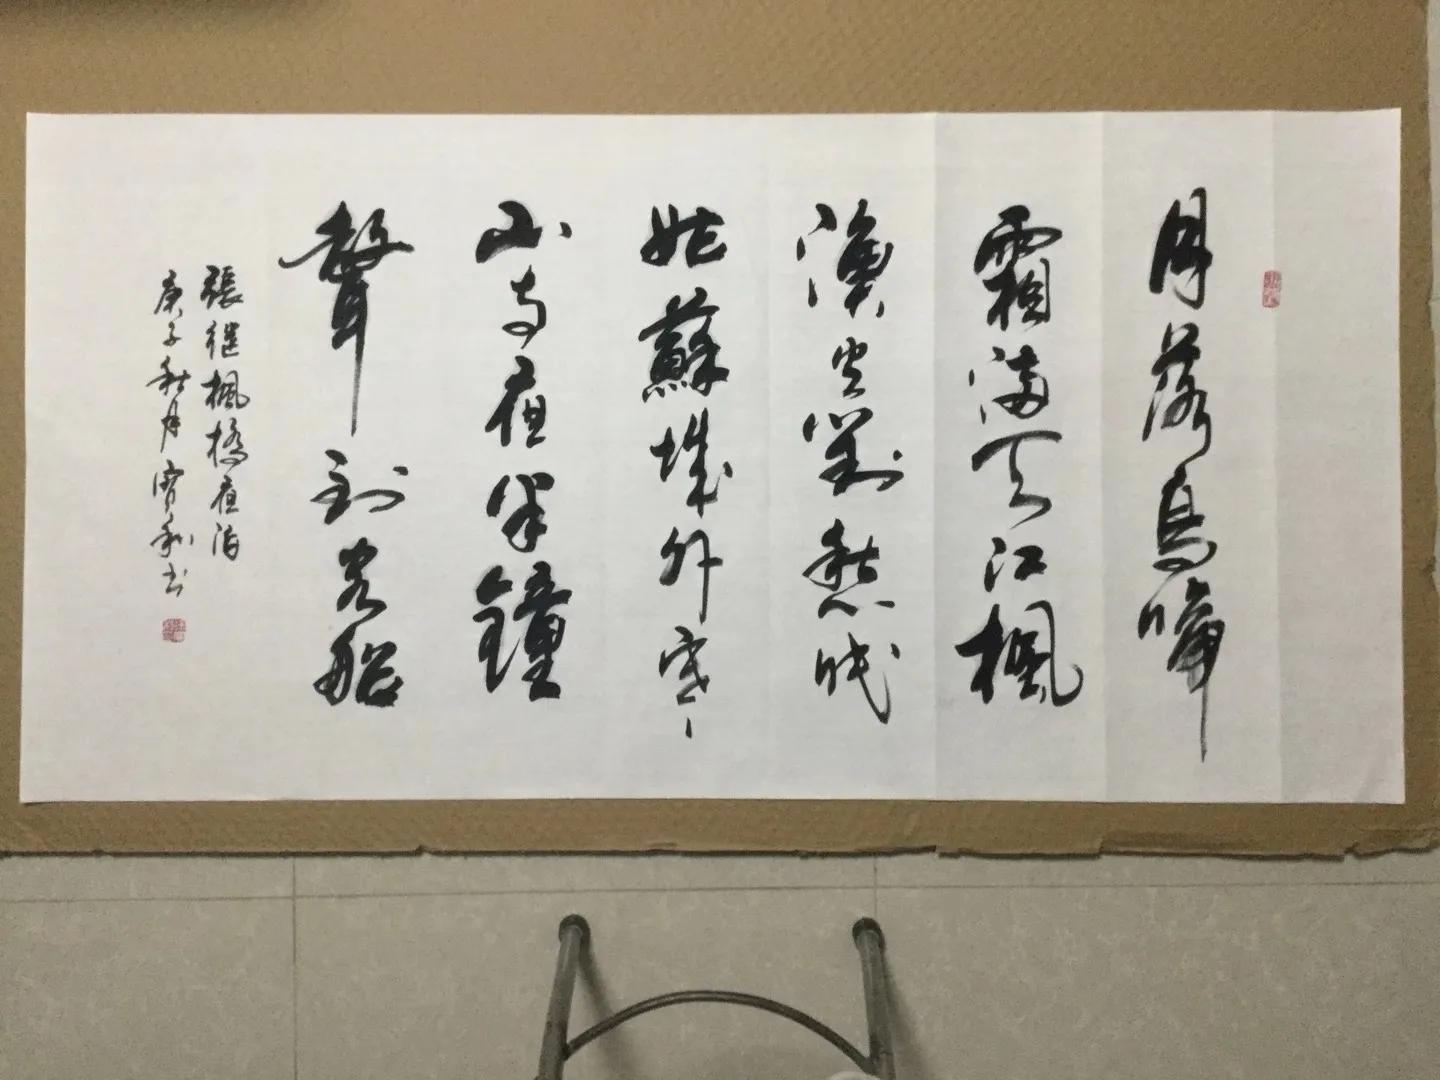 月落烏啼
霜滿天江楓
漁火對愁眠
姑蘇城外寒
山寺夜半鐘
聲到客船
張继楓橋夜泊
庚子秋月寶书